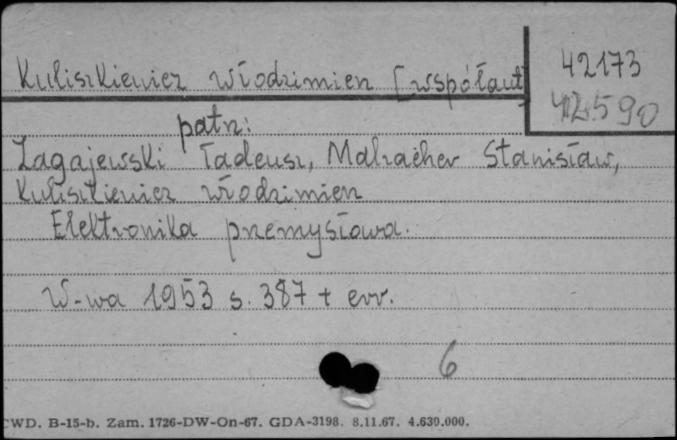 42173
Kuliszkiewicz Włodzimierz [współaut]
42590
patrz:
Zagajewski Tadeusz, Malzacher Stanisław,
Kuliszkiewicz Włodzimierz
Elektronika przemysłowa.
W-wa 1953 s. 387 + err.
6
CWD. B-15-b. Zam. 1726-DW-On-67. GDA-3198. 8.11.67. 4.630.000.